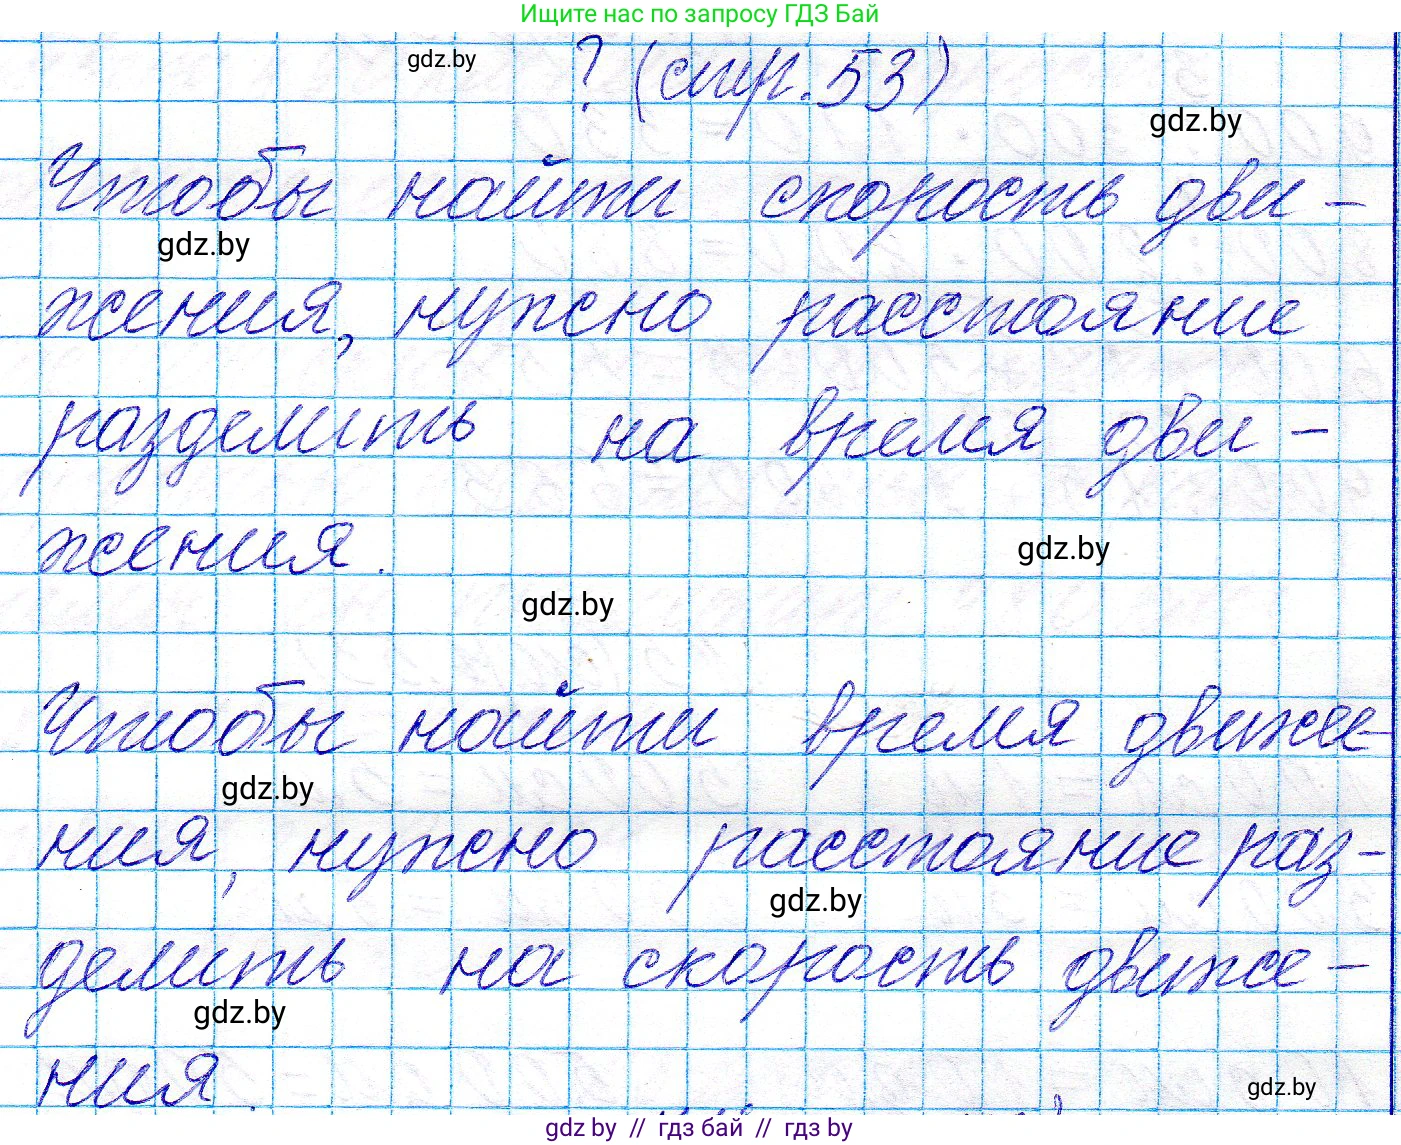 Ищите нас по запросу ГДЗ Бай
gdz.by
? (стр. 53)
gdz.by
Чтобы найти скорость дви-
gdz.by
жения, нужно расстояние
разделить на время дви-
жения.
gdz.by
gdz.by
Чтобы найти время движе-
gdz.by
ния, нужно расстояние раз-
gdz.by
делить на скорость движе-
gdz.by
ния.
gdz.by
gdz by // гдз бай // гдз by